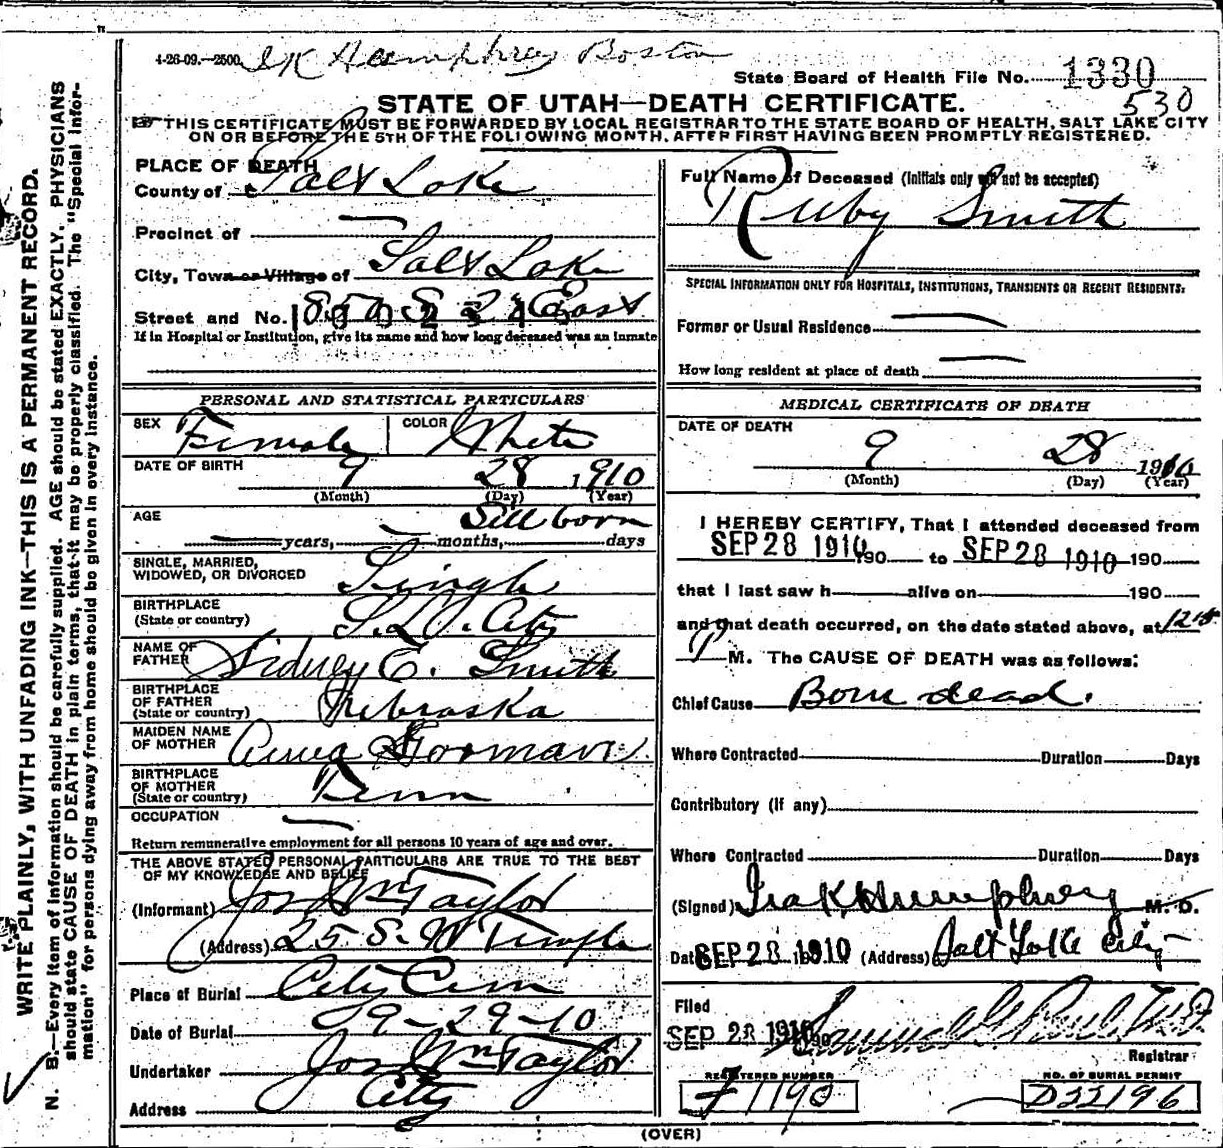 4-26-09.—2500. I K Humphrey Boston
State Board of Health File No. 1330
530
STATE OF UTAH—DEATH CERTIFICATE.
THIS CERTIFICATE MUST BE FORWARDED BY LOCAL REGISTRAR TO THE STATE BOARD OF HEALTH, SALT LAKE CITY
ON OR BEFORE THE 5TH OF THE FOLLOWING MONTH, AFTER FIRST HAVING BEEN PROMPTLY REGISTERED.
WRITE PLAINLY, WITH UNFADING INK—THIS IS A PERMANENT RECORD.
N. B.—Every item of information should be carefully supplied. AGE should be stated EXACTLY. PHYSICIANS
should state CAUSE OF DEATH in plain terms, that it may be properly classified. The "Special Infor-
mation" for persons dying away from home should be given in every instance.
PLACE OF DEATH
County of Salt Lake
Precinct of
City, Town or Village of Salt Lake
Street and No. 857 S 2nd East
If in Hospital or Institution, give its name and how long deceased was an inmate
PERSONAL AND STATISTICAL PARTICULARS
SEX Female COLOR White
DATE OF BIRTH 9 28 1910
(Month) (Day) (Year)
AGE Still born
years, months, days
SINGLE, MARRIED,
WIDOWED, OR DIVORCED Single
BIRTHPLACE
(State or country) S. L. City
NAME OF
FATHER Sidney E. Smith
BIRTHPLACE
OF FATHER
(State or country) Nebraska
MAIDEN NAME
OF MOTHER Anna Gorman
BIRTHPLACE
OF MOTHER
(State or country)
OCCUPATION
Return remunerative employment for all persons 10 years of age and over.
THE ABOVE STATED PERSONAL PARTICULARS ARE TRUE TO THE BEST
OF MY KNOWLEDGE AND BELIEF
(Informant) Jos Wm Taylor
(Address) 25 S. W Temple
Place of Burial City Cem
Date of Burial 9-29-10
Undertaker Jos Wm Taylor
Address City
Full Name of Deceased (Initials only will not be accepted)
Ruby Smith
SPECIAL INFORMATION ONLY FOR HOSPITALS, INSTITUTIONS, TRANSIENTS OR RECENT RESIDENTS:
Former or Usual Residence
How long resident at place of death
MEDICAL CERTIFICATE OF DEATH
DATE OF DEATH
9 28 1910
(Month) (Day) (Year)
I HEREBY CERTIFY, That I attended deceased from
SEP 28 1910 190 to SEP 28 1910 190
that I last saw h alive on 190
and that death occurred, on the date stated above, at 12:15
P M. The CAUSE OF DEATH was as follows:
Chief Cause Born dead.
Where Contracted Duration Days
Contributory (if any)
Where Contracted Duration Days
(Signed) Ira K Humphrey M. D.
Date SEP 28 1910 (Address) Salt Lake City
Filed
SEP 28 1910
Registrar
REGISTERED NUMBER NO. OF BURIAL PERMIT
F 1190 D32196
(OVER)